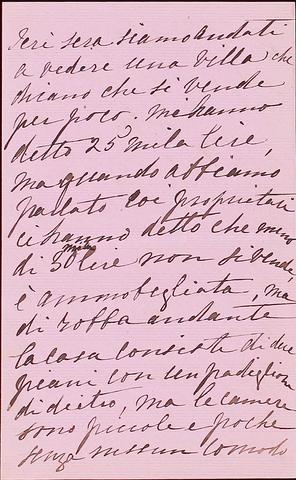 Ieri sera siamo andati
a vedere una villa che
dicano che si vende
per poco. mi hanno
detto 25 mila lire,
ma quando abbiamo
parlato coi proprietari
ci hanno detto che meno
di 30 mila lire non si vende,
è ammobigliata, ma
di robba andante
la casa consiste di due
piani con un padiglione
di dietro, ma le camere
sono piccole e poche
senza nessun comodo